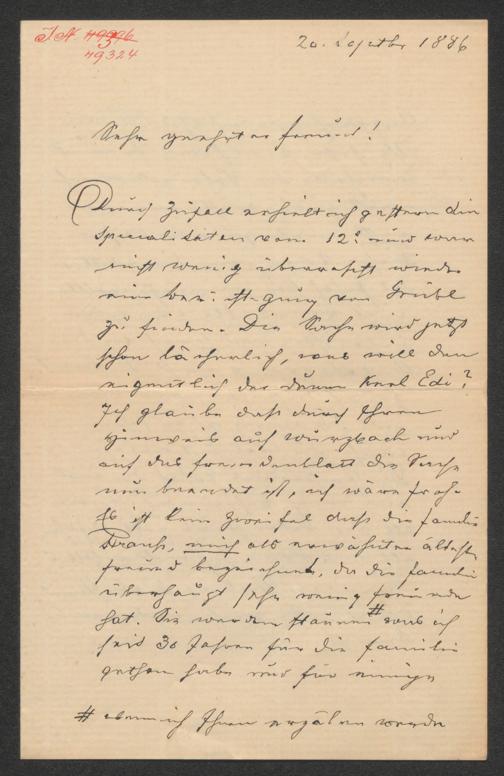 I N 49326
3
49324
20. Septbr 1886
Sehr geehrter Freund!
Durch Zufall erhielt ich gestern die
Specialitäten vom 12t und war
nicht wenig überrascht wieder
eine von Grübl
zu finden. Die Sache wird jetzt
schon lächerlich, was will den
eigentlich der dumme Kerl Edi?
Ich glaube daß durch Ihren
Hinweis auf Wurzbach und
auf das Fremdenblatt die Sache
nun beendet ist, ich wäre froh.
Es ist kein Zweifel daß die Familie
Strauß, mich als erwähnten ältesten
Freund bezeichnet, da die Familie
überhaupt sehr wenig Freunde
hat. Sie werden staunen # was ich
seit 30 Jahren für die Familie
gethan habe und für einige
# wenn ich Ihnen erzälen werde